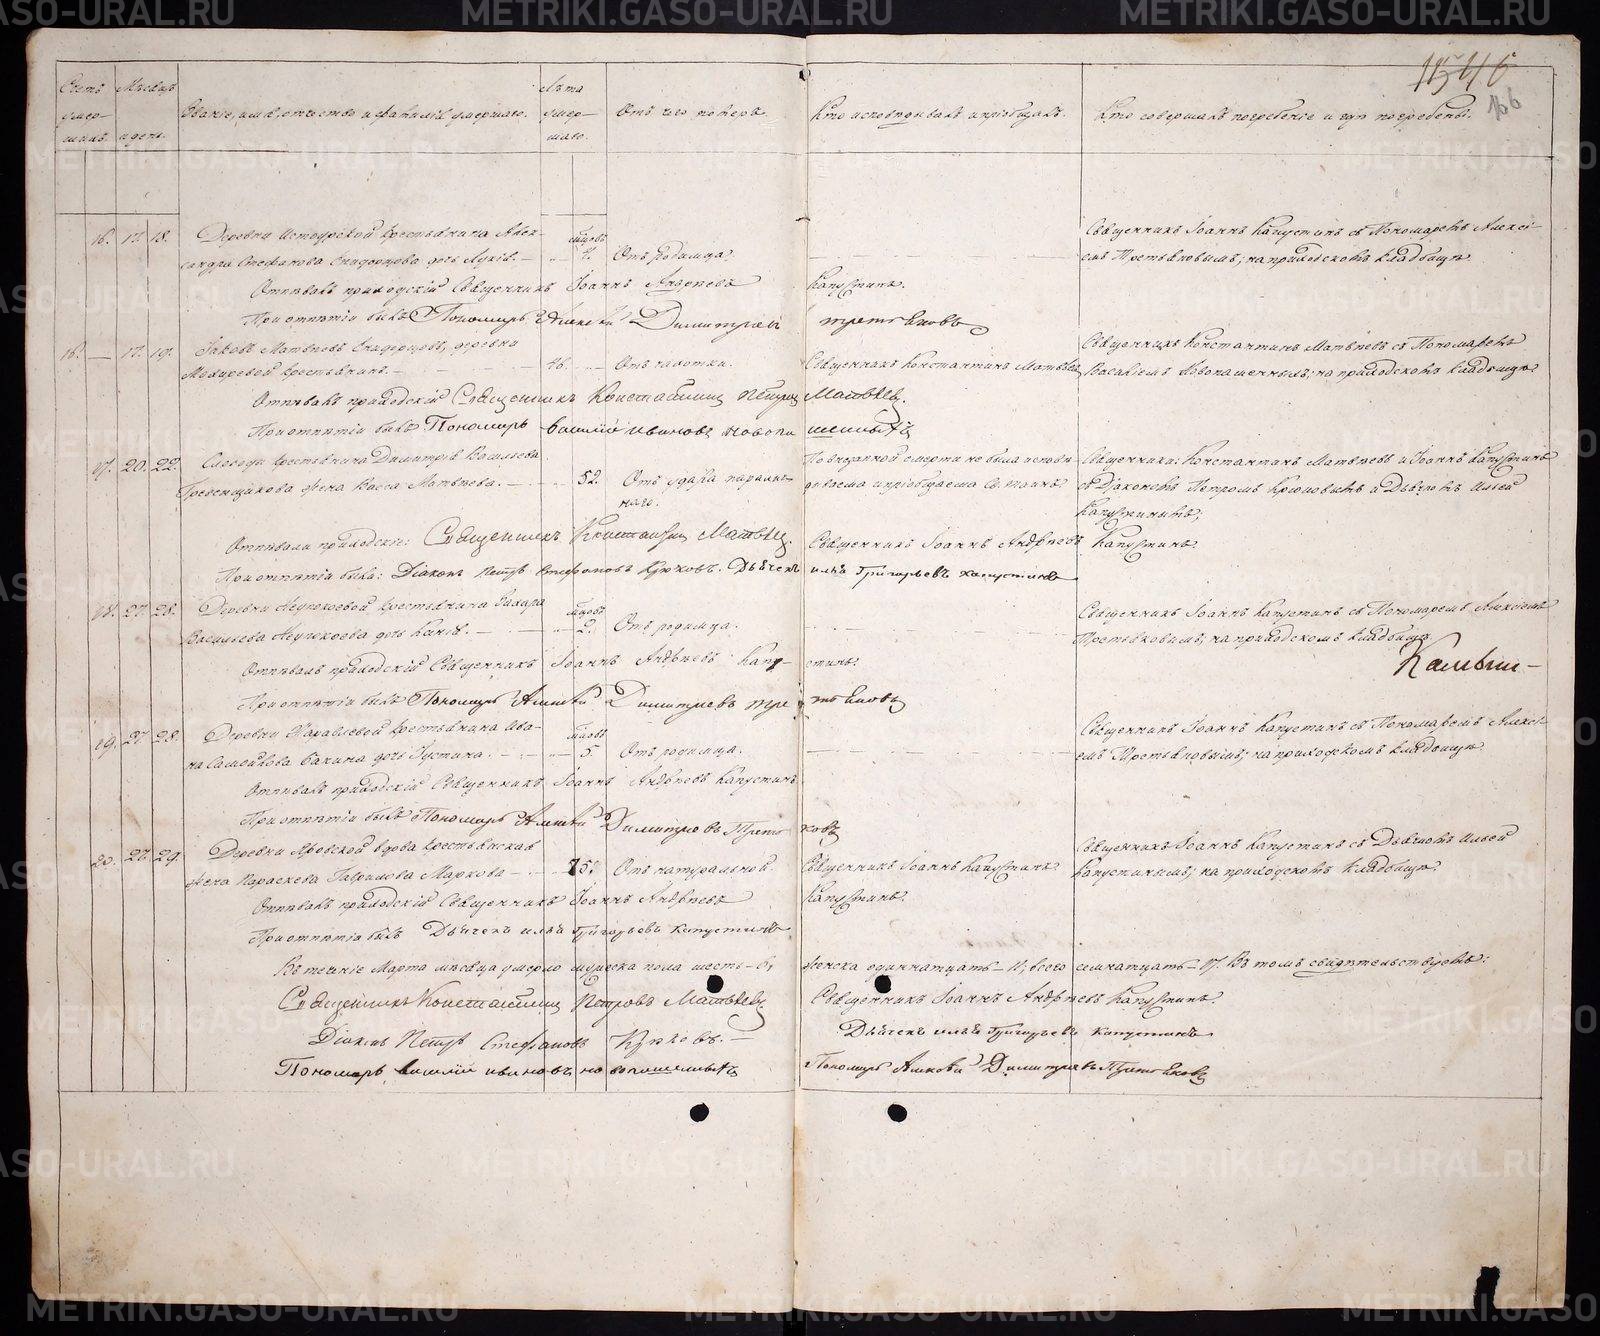 METRIKI.GASO-URAL.RU
Счетъ умер- шихъ.
Мѣсяцъ и день.
Званіе, имя, отчество и фамилія умершаго.
Лѣта умер- шаго.
Отъ чего померъ.
Кто исповѣдывалъ и пріобщалъ.
Кто совершалъ погребеніе и гдѣ погребены.
166
16. 17. 18. Деревни крестьянина Алек-
сандра Стефанова дочь
мѣсцовъ
Отъ родимца.
Священникъ Іоаннъ Капустинъ съ Пономаремъ Алексі-
емъ Третьяковымъ; на приходскомъ кладбищѣ.
Отпѣвалъ приходскій Священникъ Іоаннъ Андреевъ Капустинъ.
При отпѣтіи былъ Пономарь Алексѣй Димитріевъ Третьяковъ
16. — 17. 19. Іаковъ Матвѣевъ деревни
крестьянинъ.
46. Отъ чахотки.
Священникъ Константинъ Матвѣевъ
Священникъ Константинъ Матвѣевъ съ Пономаремъ
Василіемъ Новопашеннымъ; на приходскомъ кладбищѣ
Отпѣвалъ приходскій Священникъ Константинъ Петровъ Матвѣевъ.
При отпѣтіи былъ Пономарь Василій Ивановъ Новопашенныхъ
17. 20. 22. Слободы крестьянина Димитрія Васильева
Гребенщикова жена Васса Матвѣева.
52. Отъ удара паралич-
наго.
По внезапной смерти не была исповѣ-
дываема и пріобщаема Св. таинъ
Священники: Константинъ Матвѣевъ и Іоаннъ Капустинъ
съ Діакономъ Петромъ Крюковымъ и Дьячкомъ Ильей
Капустинымъ;
Отпѣвали приходскіе: Священникъ Константинъ Матвѣевъ. Священникъ Іоаннъ Андреевъ Капустинъ.
При отпѣтіи были: Діаконъ Петръ Стефановъ Крюковъ. Дьячекъ Илья Григорьевъ Капустинъ
18. 27. 28. Деревни крестьянина Захара
Васильева дочь
мѣсцовъ
2. Отъ родимца.
Священникъ Іоаннъ Капустинъ съ Пономаремъ Алексіемъ
Третьяковымъ; на приходскомъ кладбищѣ
Отпѣвалъ приходскій Священникъ Іоаннъ Андреевъ Капу- стинъ.
При отпѣтіи былъ Пономарь Алексѣй Димитріевъ Третьяковъ
19. 27. 28. Деревни крестьянина Ива-
на дочь Іустина.
мѣсцовъ
5. Отъ родимца.
Священникъ Іоаннъ Капустинъ съ Пономаремъ Алексі-
емъ Третьяковымъ; на приходскомъ кладбищѣ
Отпѣвалъ приходскій Священникъ Іоаннъ Андреевъ Капустинъ
При отпѣтіи былъ Пономарь Алексѣй Димитріевъ Третьяковъ
20. 27. 29. Деревни вдова крестьянская
жена Параскева Гаврилова Маркова
75. Отъ натуральной.
Священникъ Іоаннъ Капустинъ
Священникъ Іоаннъ Капустинъ съ Дьячкомъ Ильей
Капустинымъ; на приходскомъ кладбищѣ.
Отпѣвалъ приходскій Священникъ Іоаннъ Андреевъ Капустинъ.
При отпѣтіи былъ Дьячекъ Илья Григорьевъ Капустинъ
Въ теченіе Марта мѣсяца умерло мужеска пола шесть – 6, женска одиннатцать – 11, всего семнатцать – 17. Въ томъ свидѣтельствуемъ:
Священникъ Константинъ Петровъ Матвѣевъ. Священникъ Іоаннъ Андреевъ Капустинъ.
Діаконъ Петръ Стефановъ Крюковъ. Дьячекъ Илья Григорьевъ Капустинъ
Пономарь Василій Ивановъ Новопашенныхъ Пономарь Алексѣй Димитріевъ Третьяковъ